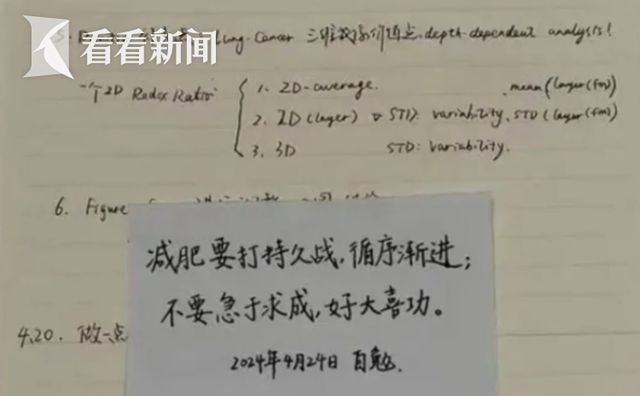 看看新闻
Lung-Cancer 三维数据 depth-dependent analysis!
一个2D Redox Ratio:
1. 2D-average. mean(layer(fm))
2. 2D(layer) STD: variability. STD(layer(fm))
3. 3D STD: variability.
6. Figure
减肥要打持久战,循序渐进;
不要急于求成,好大喜功。
4.20. 做一点
2024年4月24日 自勉.